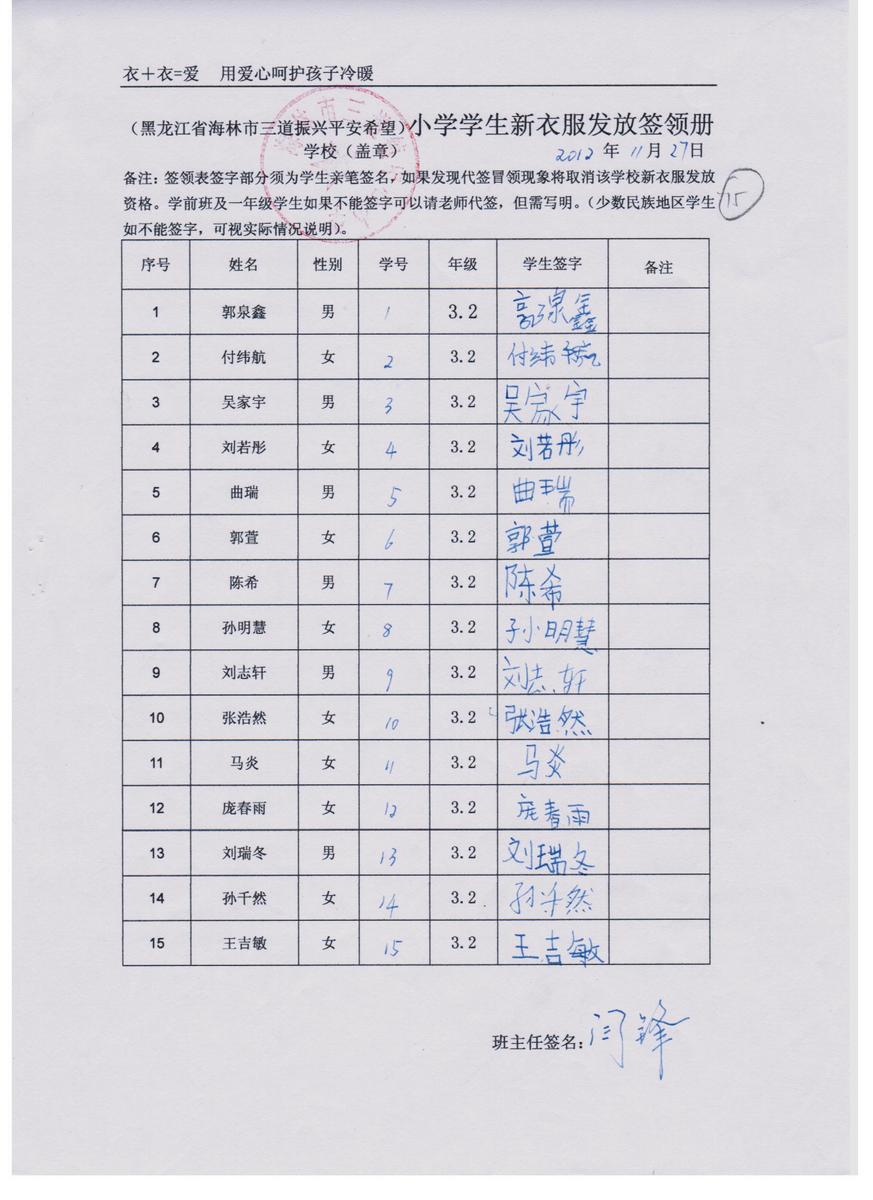 衣＋衣=爱 用爱心呵护孩子冷暖
（黑龙江省海林市三道振兴平安希望）小学学生新衣服发放签领册
学校（盖章） 2012 年 11 月 27 日
备注：签领表签字部分须为学生亲笔签名，如果发现代签冒领现象将取消该学校新衣服发放
资格。学前班及一年级学生如果不能签字可以请老师代签，但需写明。（少数民族地区学生
如不能签字，可视实际情况说明）。
15
序号 姓名 性别 学号 年级 学生签字 备注
1 郭泉鑫 男 1 3.2 郭泉鑫
2 付纬航 女 2 3.2 付纬航
3 吴家宇 男 3 3.2 吴家宇
4 刘若彤 女 4 3.2 刘若彤
5 曲瑞 男 5 3.2 曲瑞
6 郭萱 女 6 3.2 郭萱
7 陈希 男 7 3.2 陈希
8 孙明慧 女 8 3.2 孙明慧
9 刘志轩 男 9 3.2 刘志轩
10 张浩然 女 10 3.2 张浩然
11 马炎 女 11 3.2 马炎
12 庞春雨 女 12 3.2 庞春雨
13 刘瑞冬 男 13 3.2 刘瑞冬
14 孙千然 女 14 3.2 孙千然
15 王吉敏 女 15 3.2 王吉敏
班主任签名：闫锋